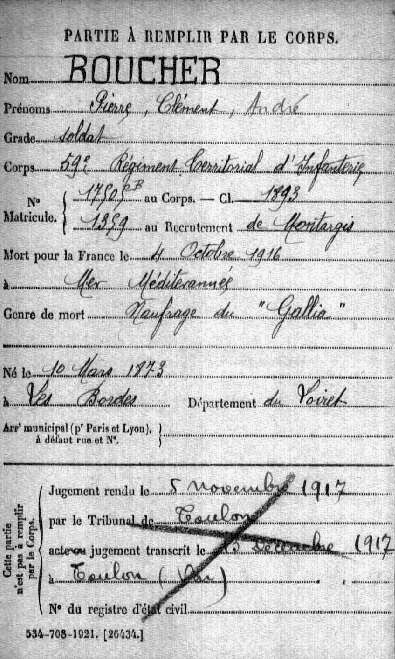 PARTIE À REMPLIR PAR LE CORPS.
Nom BOUCHER
Prénoms Pierre, Clément, André
Grade soldat
Corps 59e Régiment Territorial d'Infanterie
N° Matricule. { 1750 au Corps. — Cl. 1893
1359 au Recrutement de Montargis
Mort pour la France le 4 Octobre 1916
à Mer Méditerannée
Genre de mort Naufrage du "Gallia"
Né le 10 Mars 1873
à Les Bordes Département du Loiret
Arrt municipal (pr Paris et Lyon), à défaut rue et N°. }
Cette partie n'est pas à remplir par le Corps.
Jugement rendu le 5 novembre 1917
par le Tribunal de Toulon
acte ou jugement transcrit le 13 décembre 1917
à Toulon (Var)
N° du registre d'état civil
534-708-1921. [26434.]